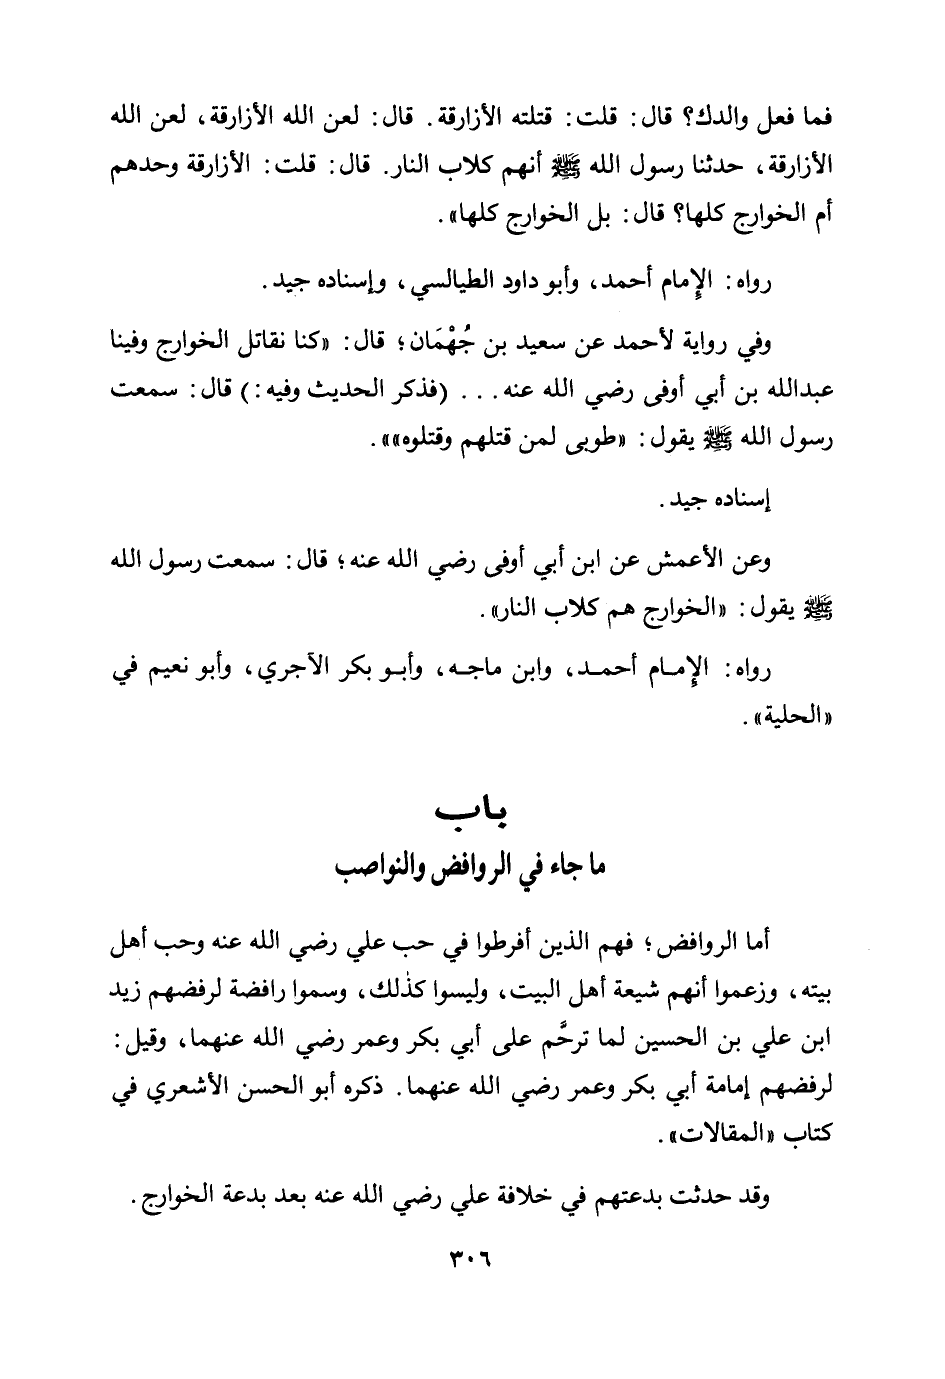 فما فعل والدك؟ قال: قلت: قتلته الأزارقة. قال: لعن الله الأزارقة، لعن الله
الأزارقة، حدثنا رسول الله ﷺ أنهم كلاب النار. قال: قلت: الأزارقة وحدهم
أم الخوارج كلها؟ قال: بل الخوارج كلها».
رواه: الإمام أحمد، وأبو داود الطيالسي، وإسناده جيد.
وفي رواية لأحمد عن سعيد بن جُهْمَان؛ قال: «كنا نقاتل الخوارج وفينا
عبدالله بن أبي أوفى رضي الله عنه... (فذكر الحديث وفيه:) قال: سمعت
رسول الله ﷺ يقول: «طوبى لمن قتلهم وقتلوه»».
إسناده جيد.
وعن الأعمش عن ابن أبي أوفى رضي الله عنه؛ قال: سمعت رسول الله
ﷺ يقول: «الخوارج هم كلاب النار».
رواه: الإمـام أحمـد، وابن ماجـه، وأبـو بكر الآجري، وأبو نعيم في
«الحلية».
باب
ما جاء في الروافض والنواصب
أما الروافض؛ فهم الذين أفرطوا في حب علي رضي الله عنه وحب أهل
بيته، وزعموا أنهم شيعة أهل البيت، وليسوا كذٰلك، وسموا رافضة لرفضهم زيد
ابن علي بن الحسين لما ترحَّم على أبي بكر وعمر رضي الله عنهما، وقيل:
لرفضهم إمامة أبي بكر وعمر رضي الله عنهما. ذكره أبو الحسن الأشعري في
كتاب «المقالات».
وقد حدثت بدعتهم في خلافة علي رضي الله عنه بعد بدعة الخوارج.
٣٠٦